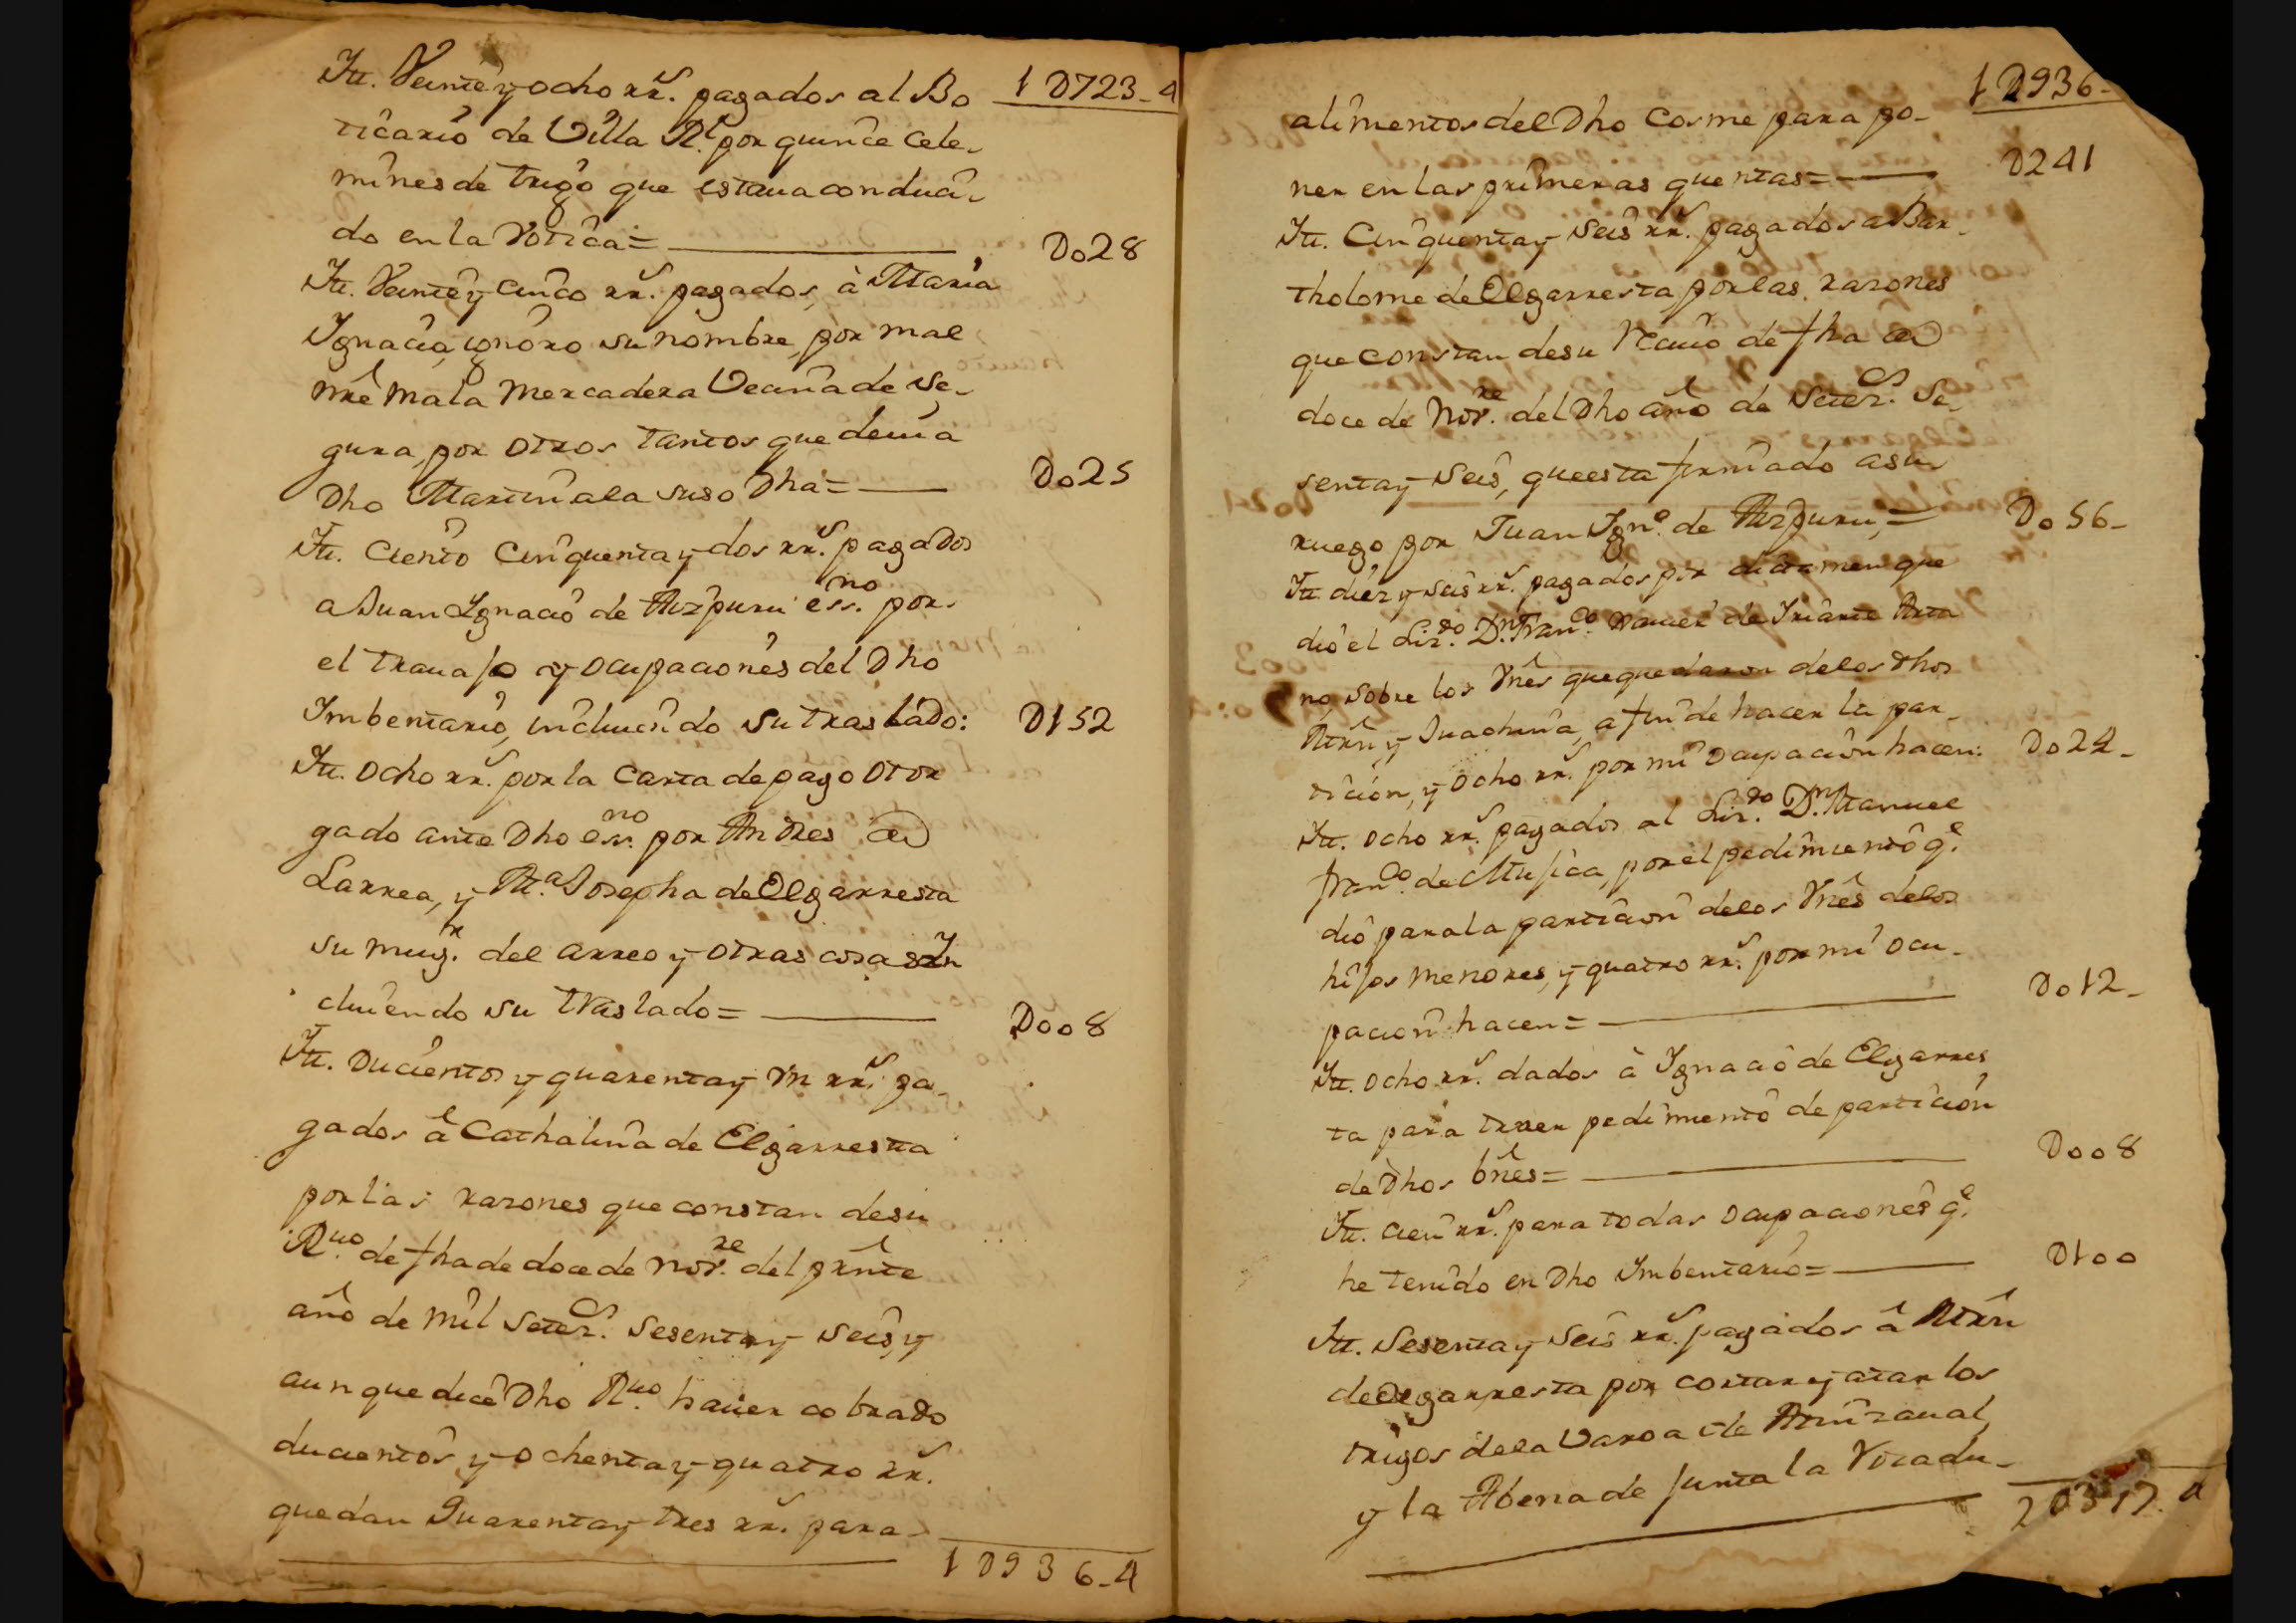 1 D723-4
Itt. Veinte y ocho rr.s pagados al Bo
ticario de Villa R.l por quince cele-
mines de trigo que estaua conduci-
do en la Votica= D028
Itt. Veinte y cinco rr.s pagados, à Maria
Ignacia, ignoro su nombre, por mal
nre Mala Mercadera Vecina de Se-
gura, por otros tantos que deuia
Dho Martin ala suso Dha= D025
Itt. Ciento Cinquenta y dos rr.s pagados
a Juan Ignacio de Aizpuru ess.no por
el trauajo y ocupaciones del Dho
Imbentario, incluiendo su traslado: D152
Itt. ocho rr.s por la Carta de pago otor
gado ante Dho ess.no por Andres de
Larrea, y M.a Josepha de Elgarresta
su mug.r del arreo y otras cosas In
cluiendo su traslado= D008
Itt. Ducientos y quarenta y Vn rr.s pa-
gados â Cathalina de Elgarresta
por las razones que constan de su
R.uo de fha de doce de Nov.re del prnte
año de mil setez.s Sesenta y Seis, y
aunque dice Dho R.uo hauer cobrado
ducientos y ochenta y quatro rr.s
quedan Quarenta y tres rr.s para
1 D936-4
1 D936-
alimentos del Dho Cosme para po-
ner en las primeras quentas= D241
Itt. Cinquenta y Seis rr.s pagados a Bar-
tholome de Elgarresta, por las razones
que constan de su Reciuo de fha de
doce de Nov.re del Dho año de Setez.s Se-
senta y Seis, que esta firmado a su
ruego por Juan Ign.o de Aizpuru,= D056-
Itt. diez y seis rr.s pagados por dictamen que
dio el Liz.do D.n Fran.co Xauier de Iriarte Arta
no, sobre los Vnês que quedaron delos Dhos
Mrñ y Juachina, a fin de hacer la par-
ticion, y ocho rr.s por mi ocupacion hacen: D024-
Itt. ocho rr.s pagados al Liz.do D.n Manuel
fran.co de Mujica, por el pedimiento q.e
dio para la particion delos Vnês delos
hijos menores, y quatro rr.s por mi ocu-
pacion hacen= D012-
Itt. ocho rr.s dados à Ignacio de Elgarres
ta para traer pedimiento de particion
de Dhos bnês= D008
Itt. cien rr.s para todas ocupaciones q.e
he tenido en Dho Imbentario= D100
Itt. Sesenta y Seis rr.s pagados â Mrñ
de Elgarresta por cortar y atar los
trigos dela Varoa de
y la Abena de junta la Vicadu-
2 D3